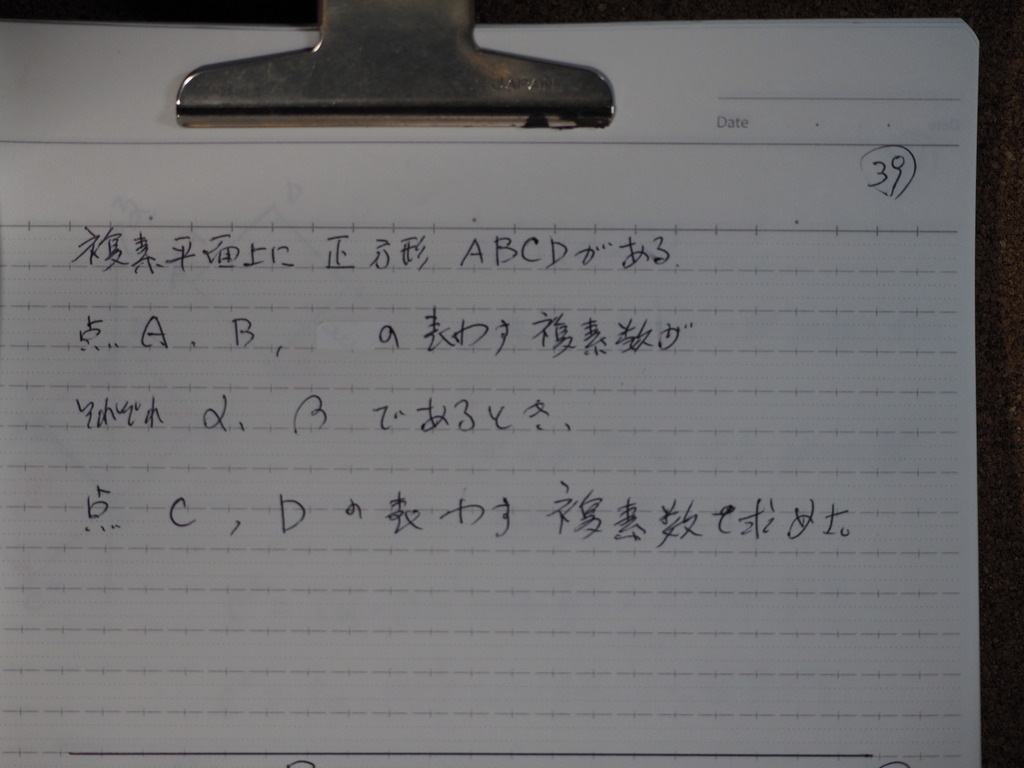 JAPAN
Date
39
複素平面上に 正方形 ABCDがある.
点 A, B, の表わす複素数が
それぞれ α, β であるとき,
点 C, D の表わす複素数を求めよ。